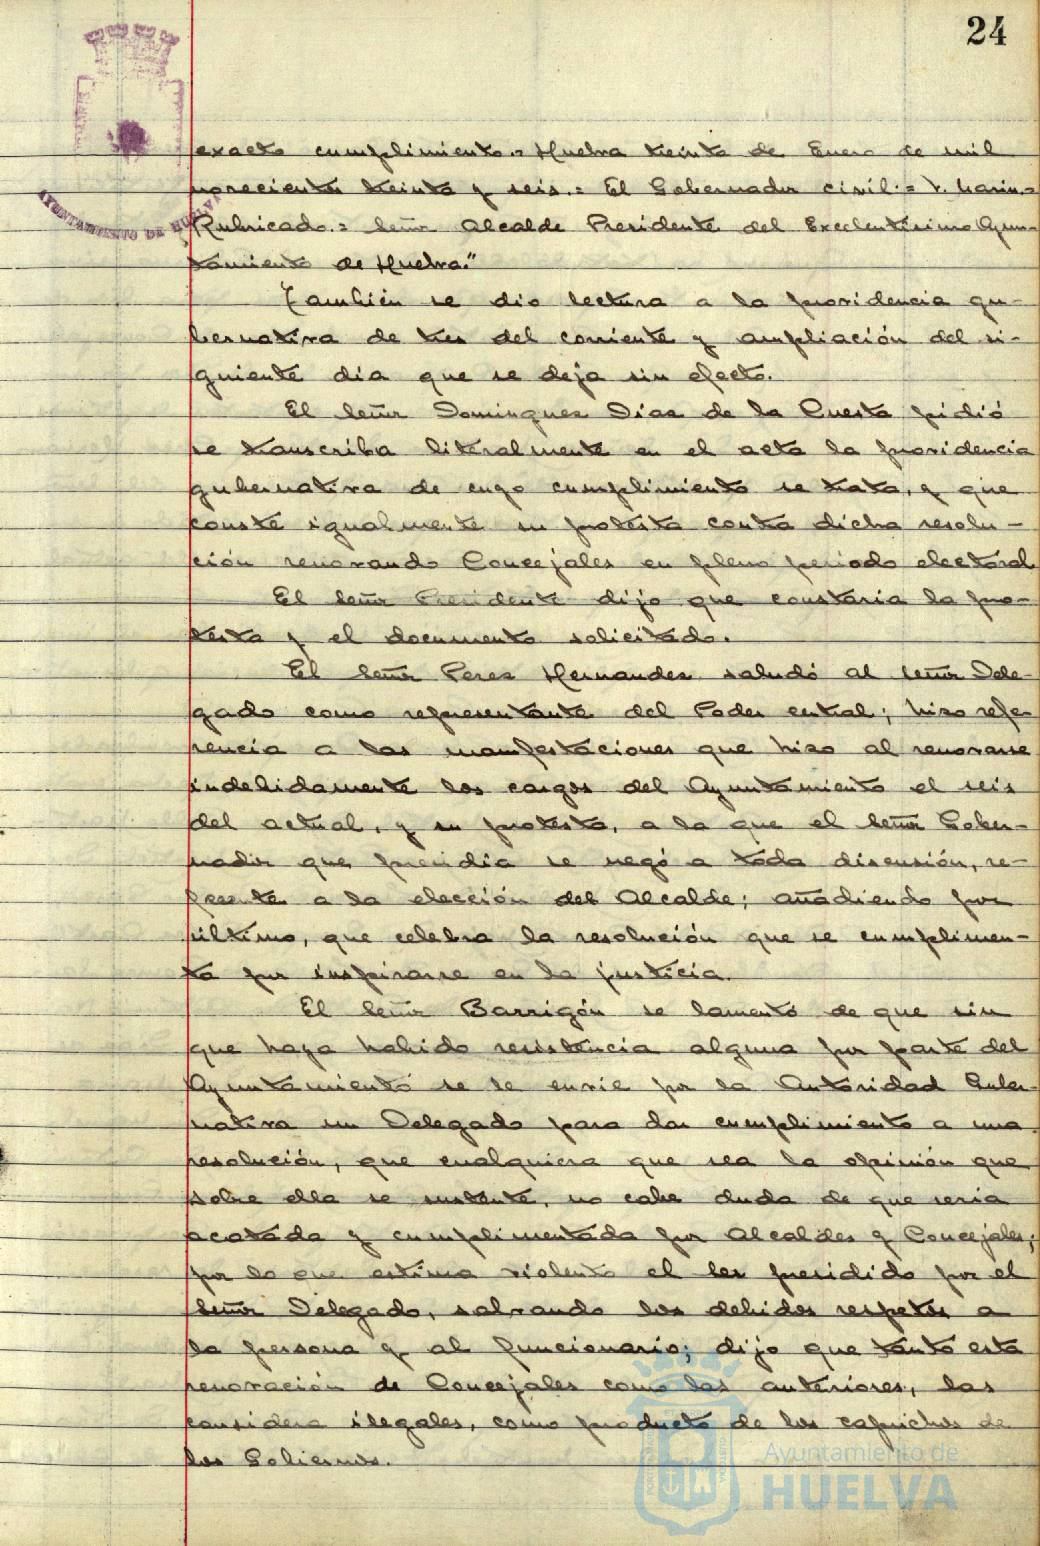 24
AYUNTAMIENTO DE HUELVA
exacto cumplimiento.= Huelva treinta de Enero de mil
novecientos treinta y seis.= El Gobernador civil.= V. Marin.=
Rubricado.= Señor Alcalde Presidente del Excelentísimo Ayun-
tamiento de Huelva."
También se dio lectura a la providencia gu-
bernativa de tres del corriente y ampliación del si-
guiente día que se deja sin efecto.
El Señor Dominguez Díaz de la Cuesta pidió
se transcriba literalmente en el acta la providencia
gubernativa de cuyo cumplimiento se trata, y que
conste igualmente su protesta contra dicha resolu-
ción renovando Concejales en pleno período electoral.
El Señor Presidente dijo que constaría la pro-
testa y el documento solicitado.
El Señor Perez Hernandez saludó al Señor Dele-
gado como representante del Poder central; hizo refe-
rencia a las manifestaciones que hizo al renovarse
indebidamente los cargos del Ayuntamiento el seis
del actual, y su protesta, a la que el Señor Gober-
nador que presidía se negó a toda discusión, re-
ferente a la elección del Alcalde; añadiendo por
último, que celebra la resolución que se cumplimen-
ta por inspirarse en la justicia.
El Señor Barrigón se lamentó de que sin
que haya habido resistencia alguna por parte del
Ayuntamiento se le envíe por la Autoridad Guber-
nativa un Delegado para dar cumplimiento a una
resolución, que cualquiera que sea la opinión que
sobre ella se sustente, no cabe duda de que sería
acatada y cumplimentada por Alcaldes y Concejales;
por lo que estima violento el ser presidido por el
Señor Delegado, salvando los debidos respetos a
la persona y al funcionario; dijo que tanto esta
renovación de Concejales como las anteriores, las
considera ilegales, como producto de los caprichos de
los Gobiernos.
Ayuntamiento de
HUELVA